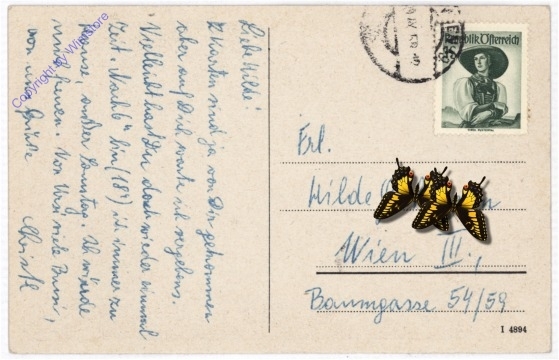 Liebe Hilde!
2 Karten sind ja von Dir gekommen
aber auf Dich warte ich vergebens.
Vielleicht hast Du doch wieder einmal
Zeit. Nach 6 Uhr (18h) ich immer zu
Hause, außer Samstag. Ich würde
mich freuen. Von Ursi viele Bussi,
von mir Grüße
Copyright by
Republik Österreich
Frl.
Hilde
Wien III.,
Baumgasse 54/59
I 4894